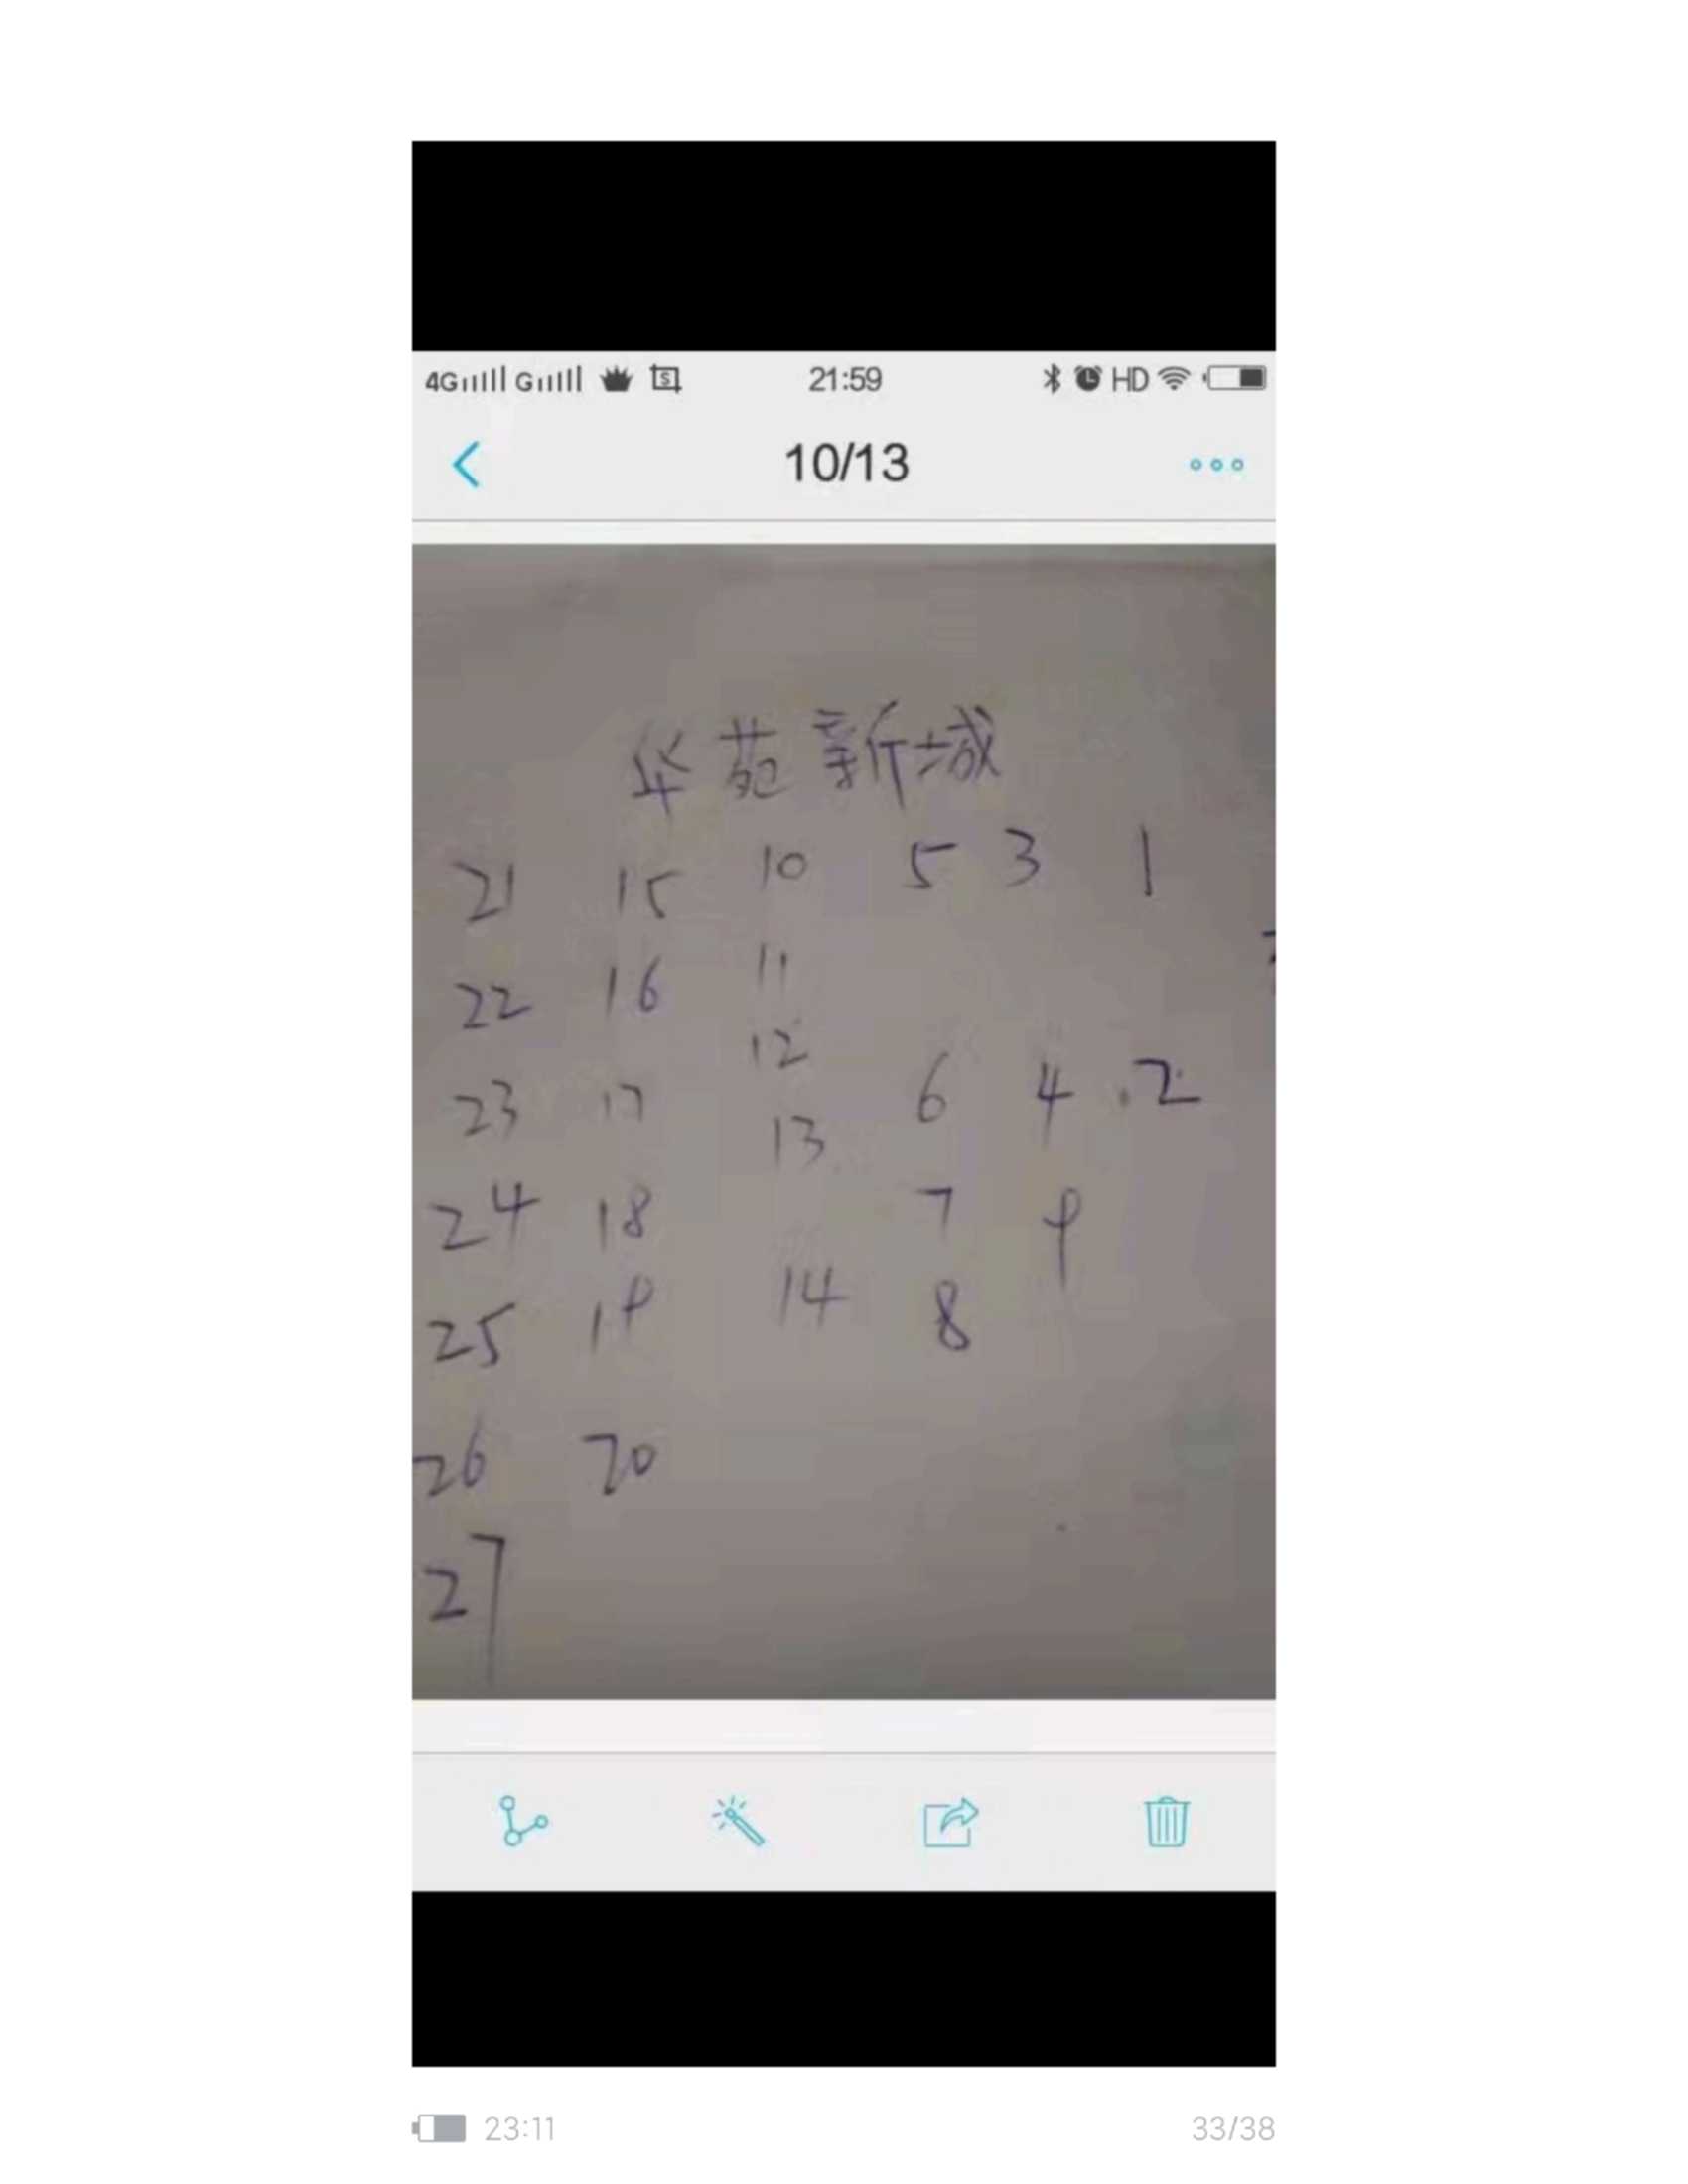 4G G 21:59 HD
10/13
华苑新城
21 15 10 5 3 1
22 16 11
12
23 17 6 4 .2
13
24 18 7 9
25 19 14 8
26 20
27
23:11 33/38